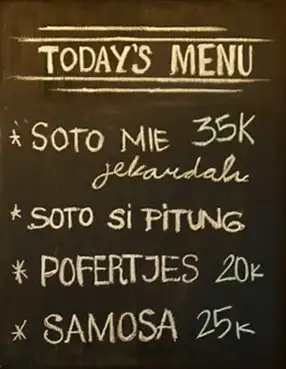 TODAY'S MENU
* SOTO MIE 35K
jekardah
* SOTO Si PiTUNG
* POFERTJES 20K
* SAMOSA 25K